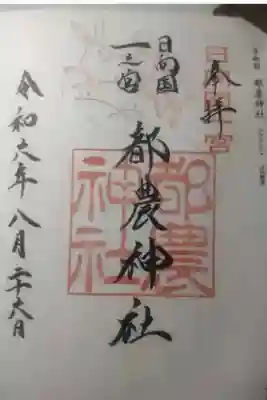 奉拝
日向国
一之宮
都農神社
都農神社
令和六年八月二十六日